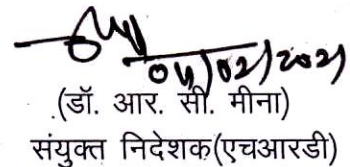 04/02/2021
(डॉ. आर. सी. मीना)
संयुक्त निदेशक(एचआरडी)